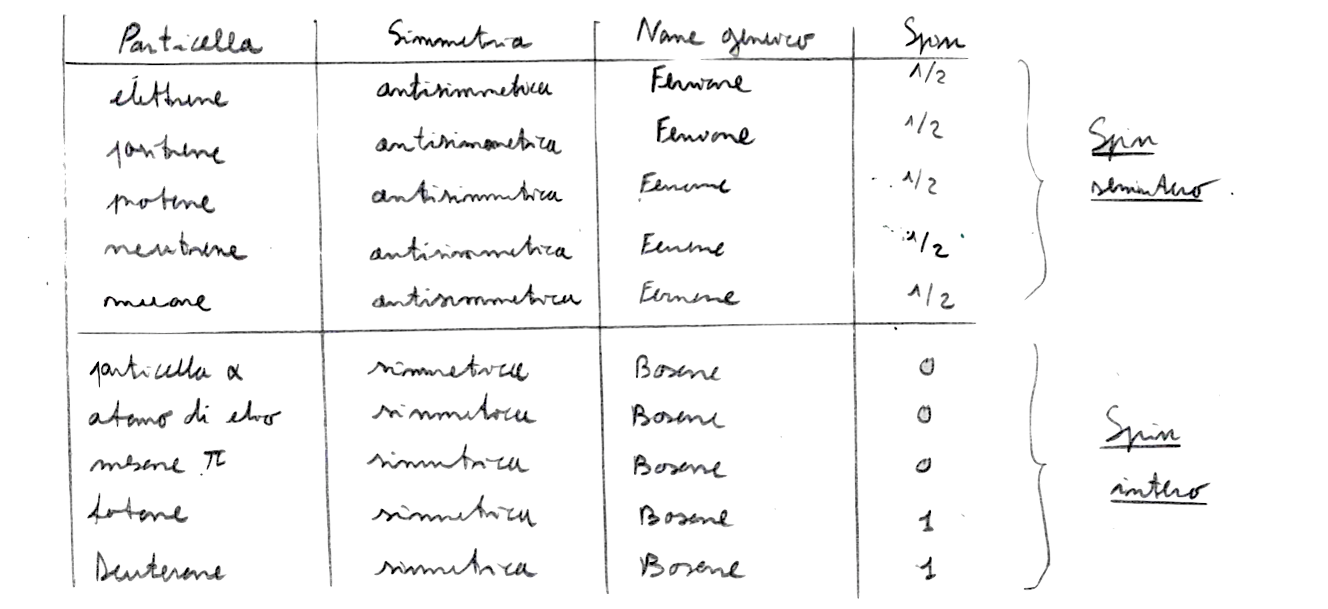 Particella Simmetria Nome generico Spin
elettrone antisimmetrica Fermione 1/2
positrone antisimmetrica Fermione 1/2
protone antisimmetrica Fermione 1/2
neutrone antisimmetrica Fermione 1/2
muone antisimmetrica Fermione 1/2
Spin
semintero
particella α simmetrica Bosone 0
atomo di elio simmetrica Bosone 0
mesone π simmetrica Bosone 0
fotone simmetrica Bosone 1
Deuterone simmetrica Bosone 1
Spin
intero